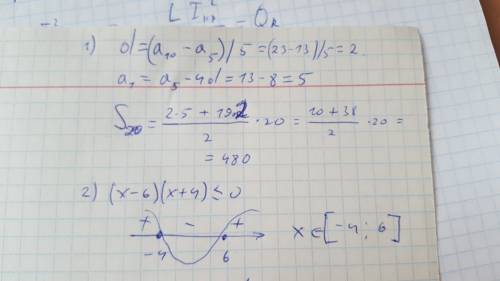 L I
1) d=(a₁₀ − a₅)/5 =(23-13)/5 = 2
a₁ = a₅ − 4d = 13 − 8 = 5
S₂₀ = (2·5 + 19·2)/2 · 20 = (10 + 38)/2 · 20 =
= 480
2) (x−6)(x+4) ≤ 0
+ − +
−4 6 x∈[−4; 6]